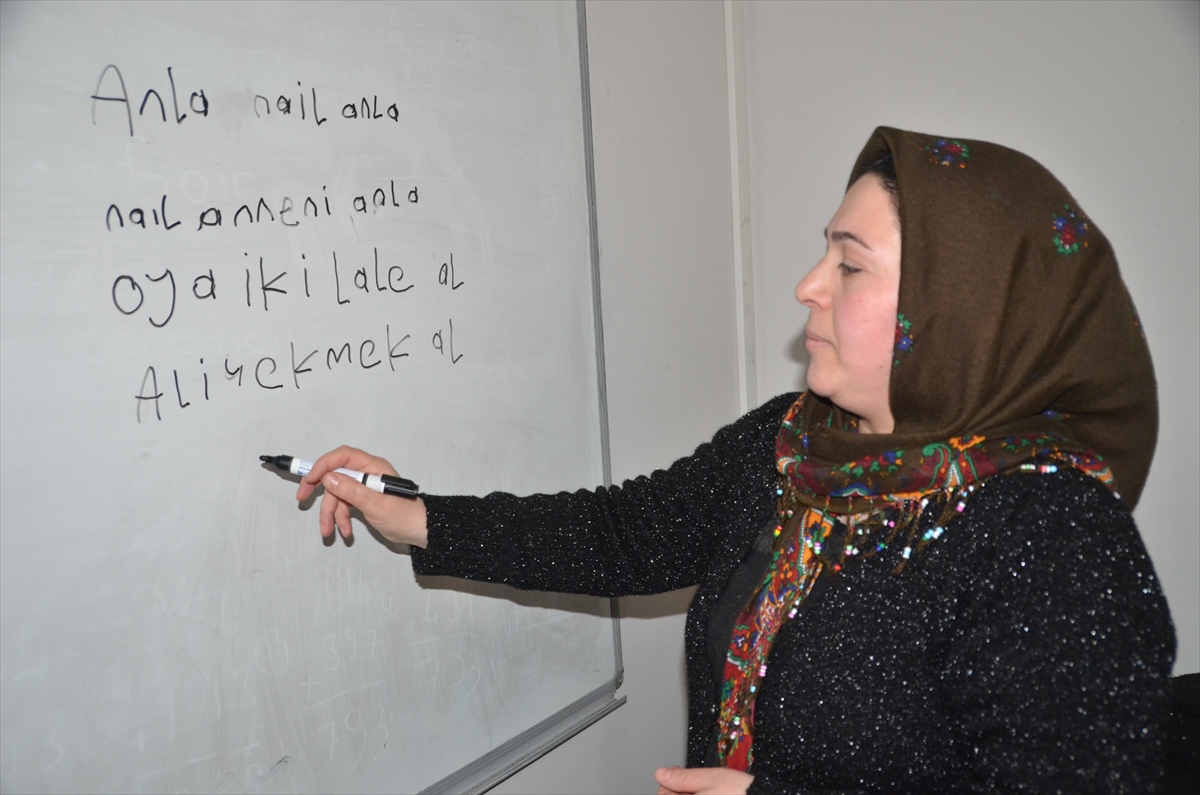 Anla nail anla
nail anneni anla
oya iki lale al
Ali yekmek al